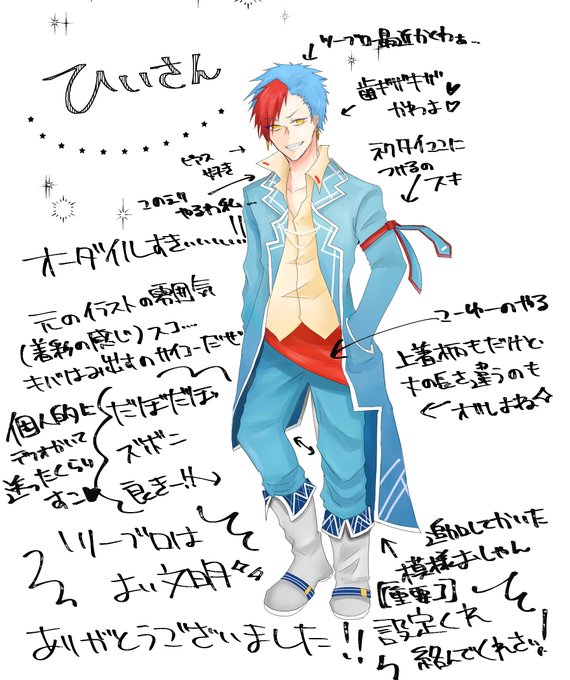 ひぃさん
ツーブロ最近かくわぁ…
歯ギザギザ
かわよ♡
ピアス
好き
ネクタイココに
つけるの
スキ
このエリ
やるわ私…
オーダイルすきぃぃぃぃ!!
元のイラストの雰囲気
(着彩の感じ)スコ…
キバはみ出すのサイコーだぜ
こーゆーのやる
上着柄もだけど
丈の長さ違うのも
オシよね☆
個人的に
送ったくらい
すこ♥
だぼだぼ
ズボン
良きー!!
ツーブロは
よい文明
追加してかいた
模様よしゃん
【重要】
設定くれ
絡んでくれさい!
ありがとうございました!!